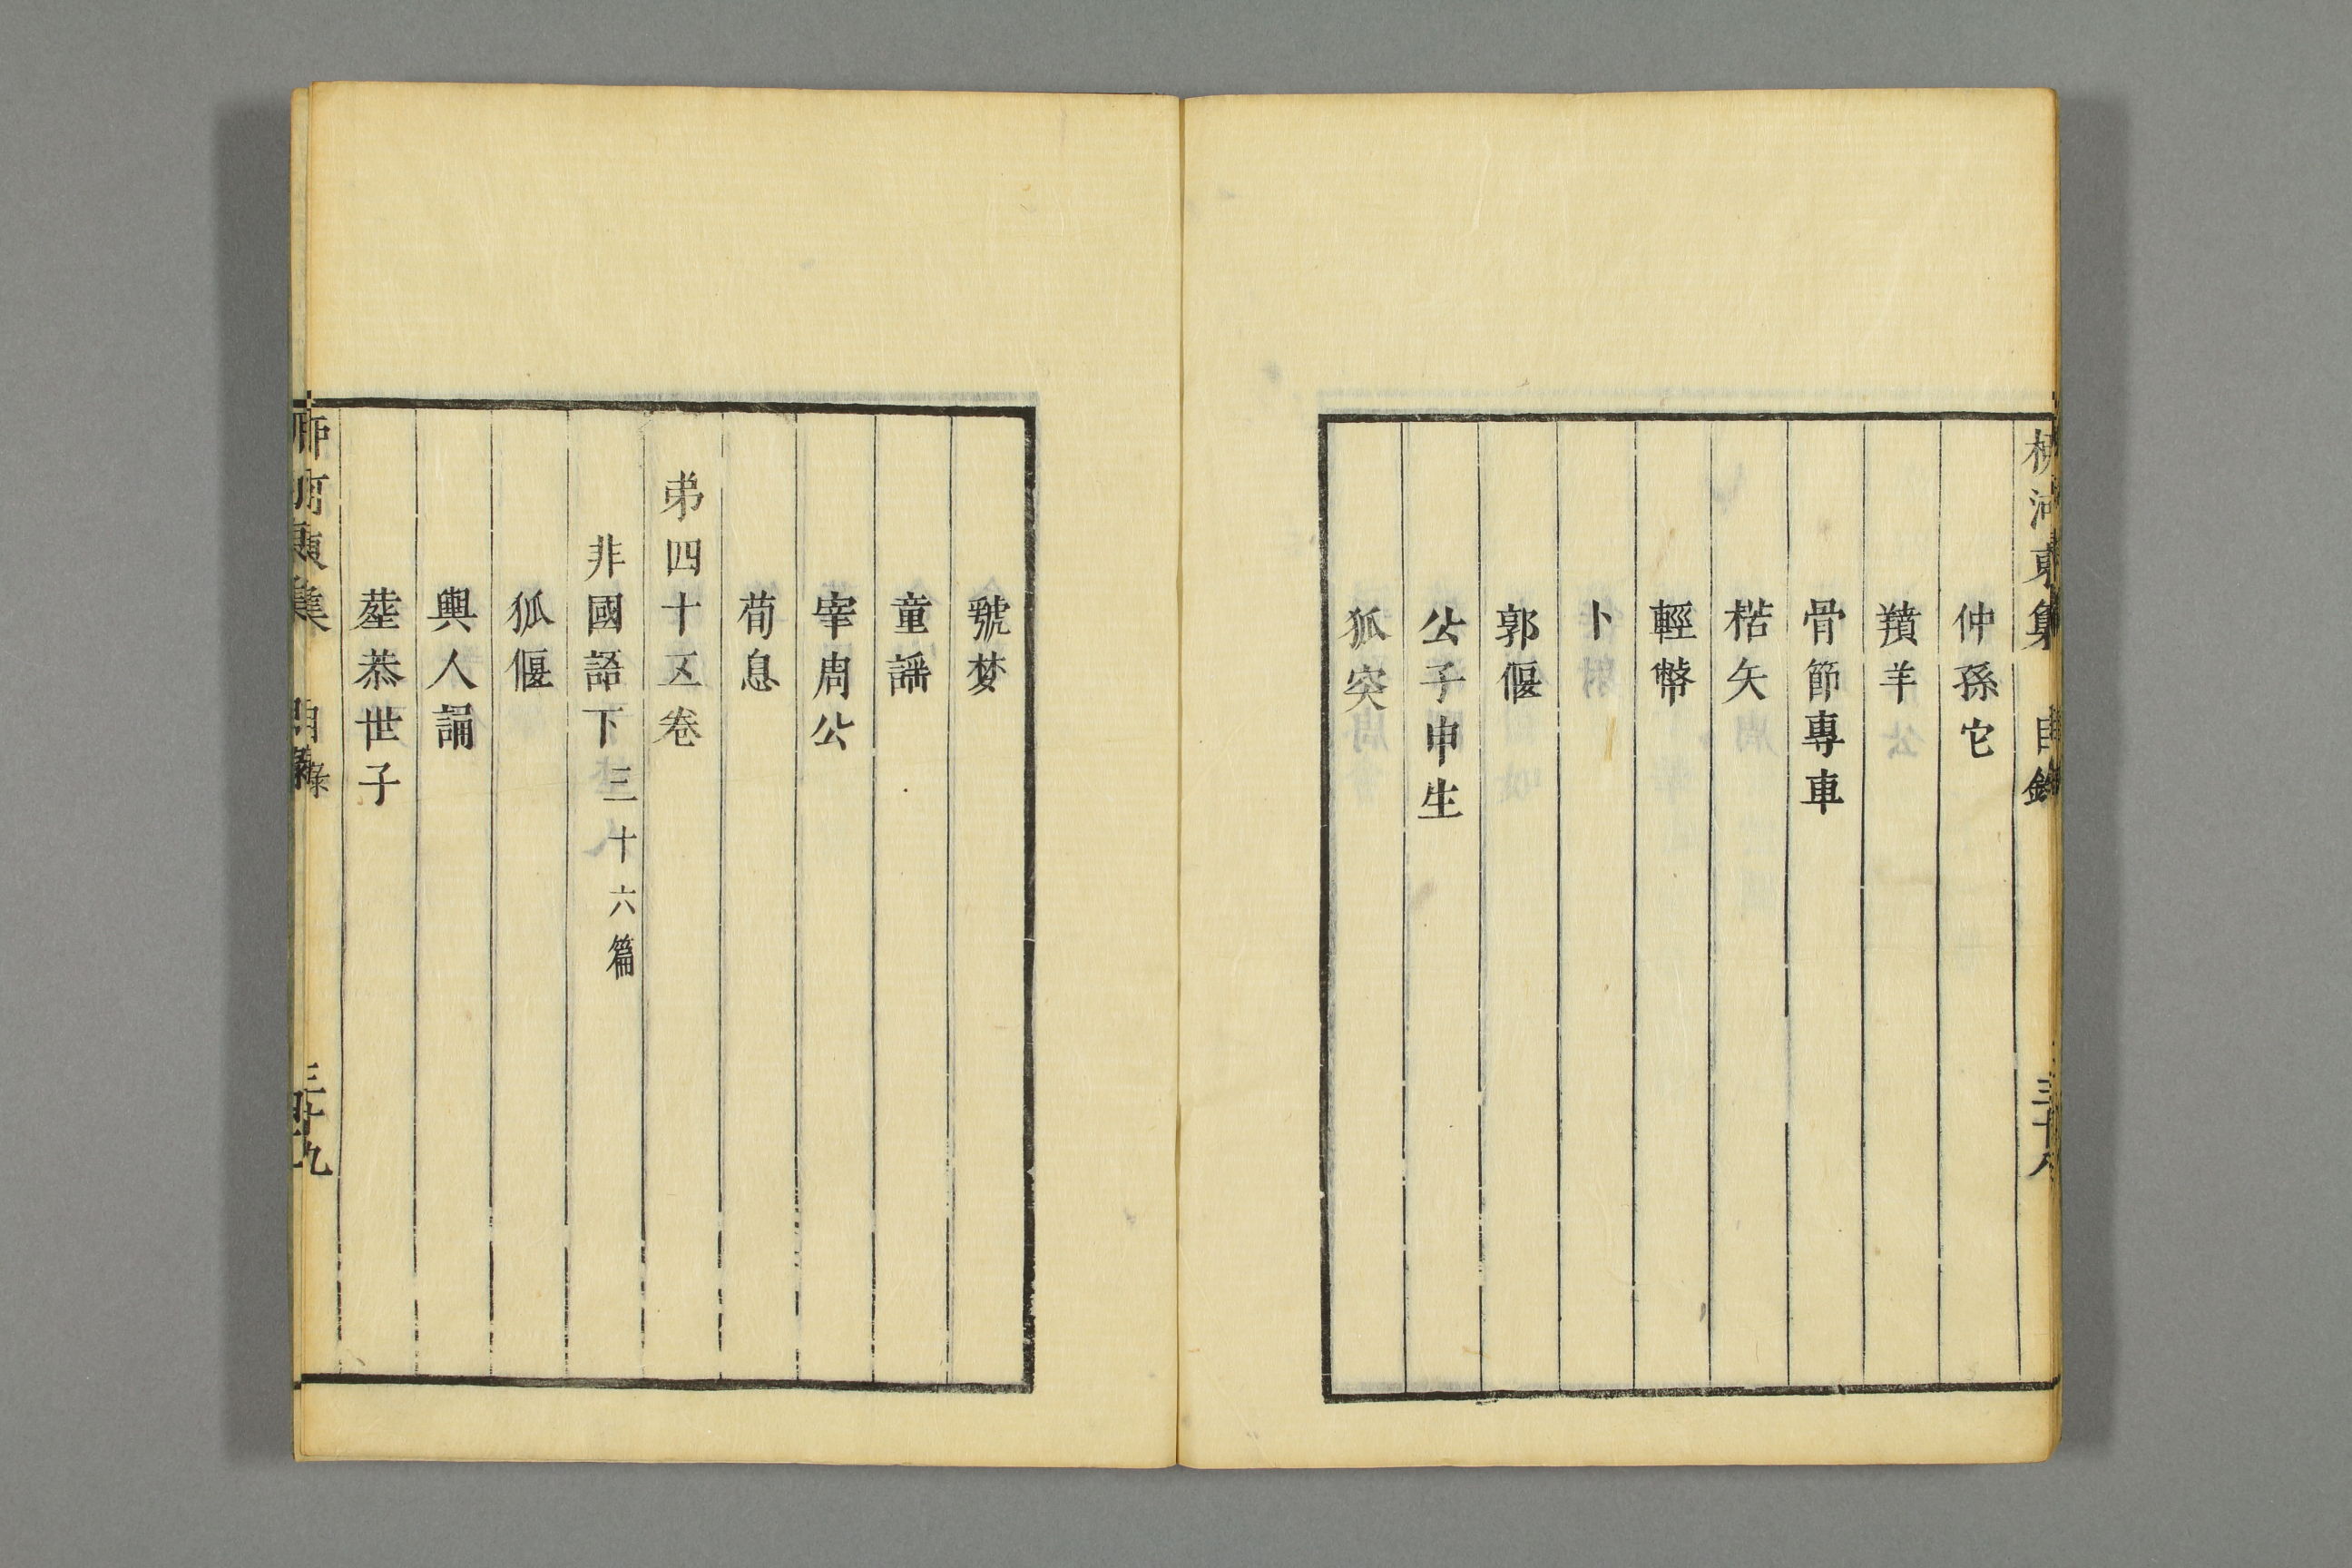 柳河東集 目錄 三十八
仲孫它
羵羊
骨節專車
楛矢
輕幣
卜
郭偃
公子申生
狐突
虢梦
童謡
宰周公
荀息
弟四十五卷
非國語下三十六篇
狐偃
輿人誦
葬恭世子
柳河東集 目錄 三十九